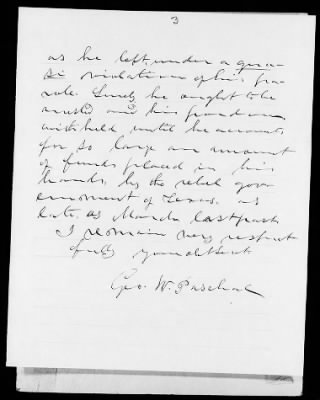 3
as he left under a qua-
si violation of his pa-
role. Surely he ought to be
arrested and his pardon
withheld, until he accounts
for so large an amount
of funds placed in his
hands, by the rebel gov-
ernment of Texas, as
late, as March last past
I remain very respect-
fully your obt Servt
Geo. W. Paschal